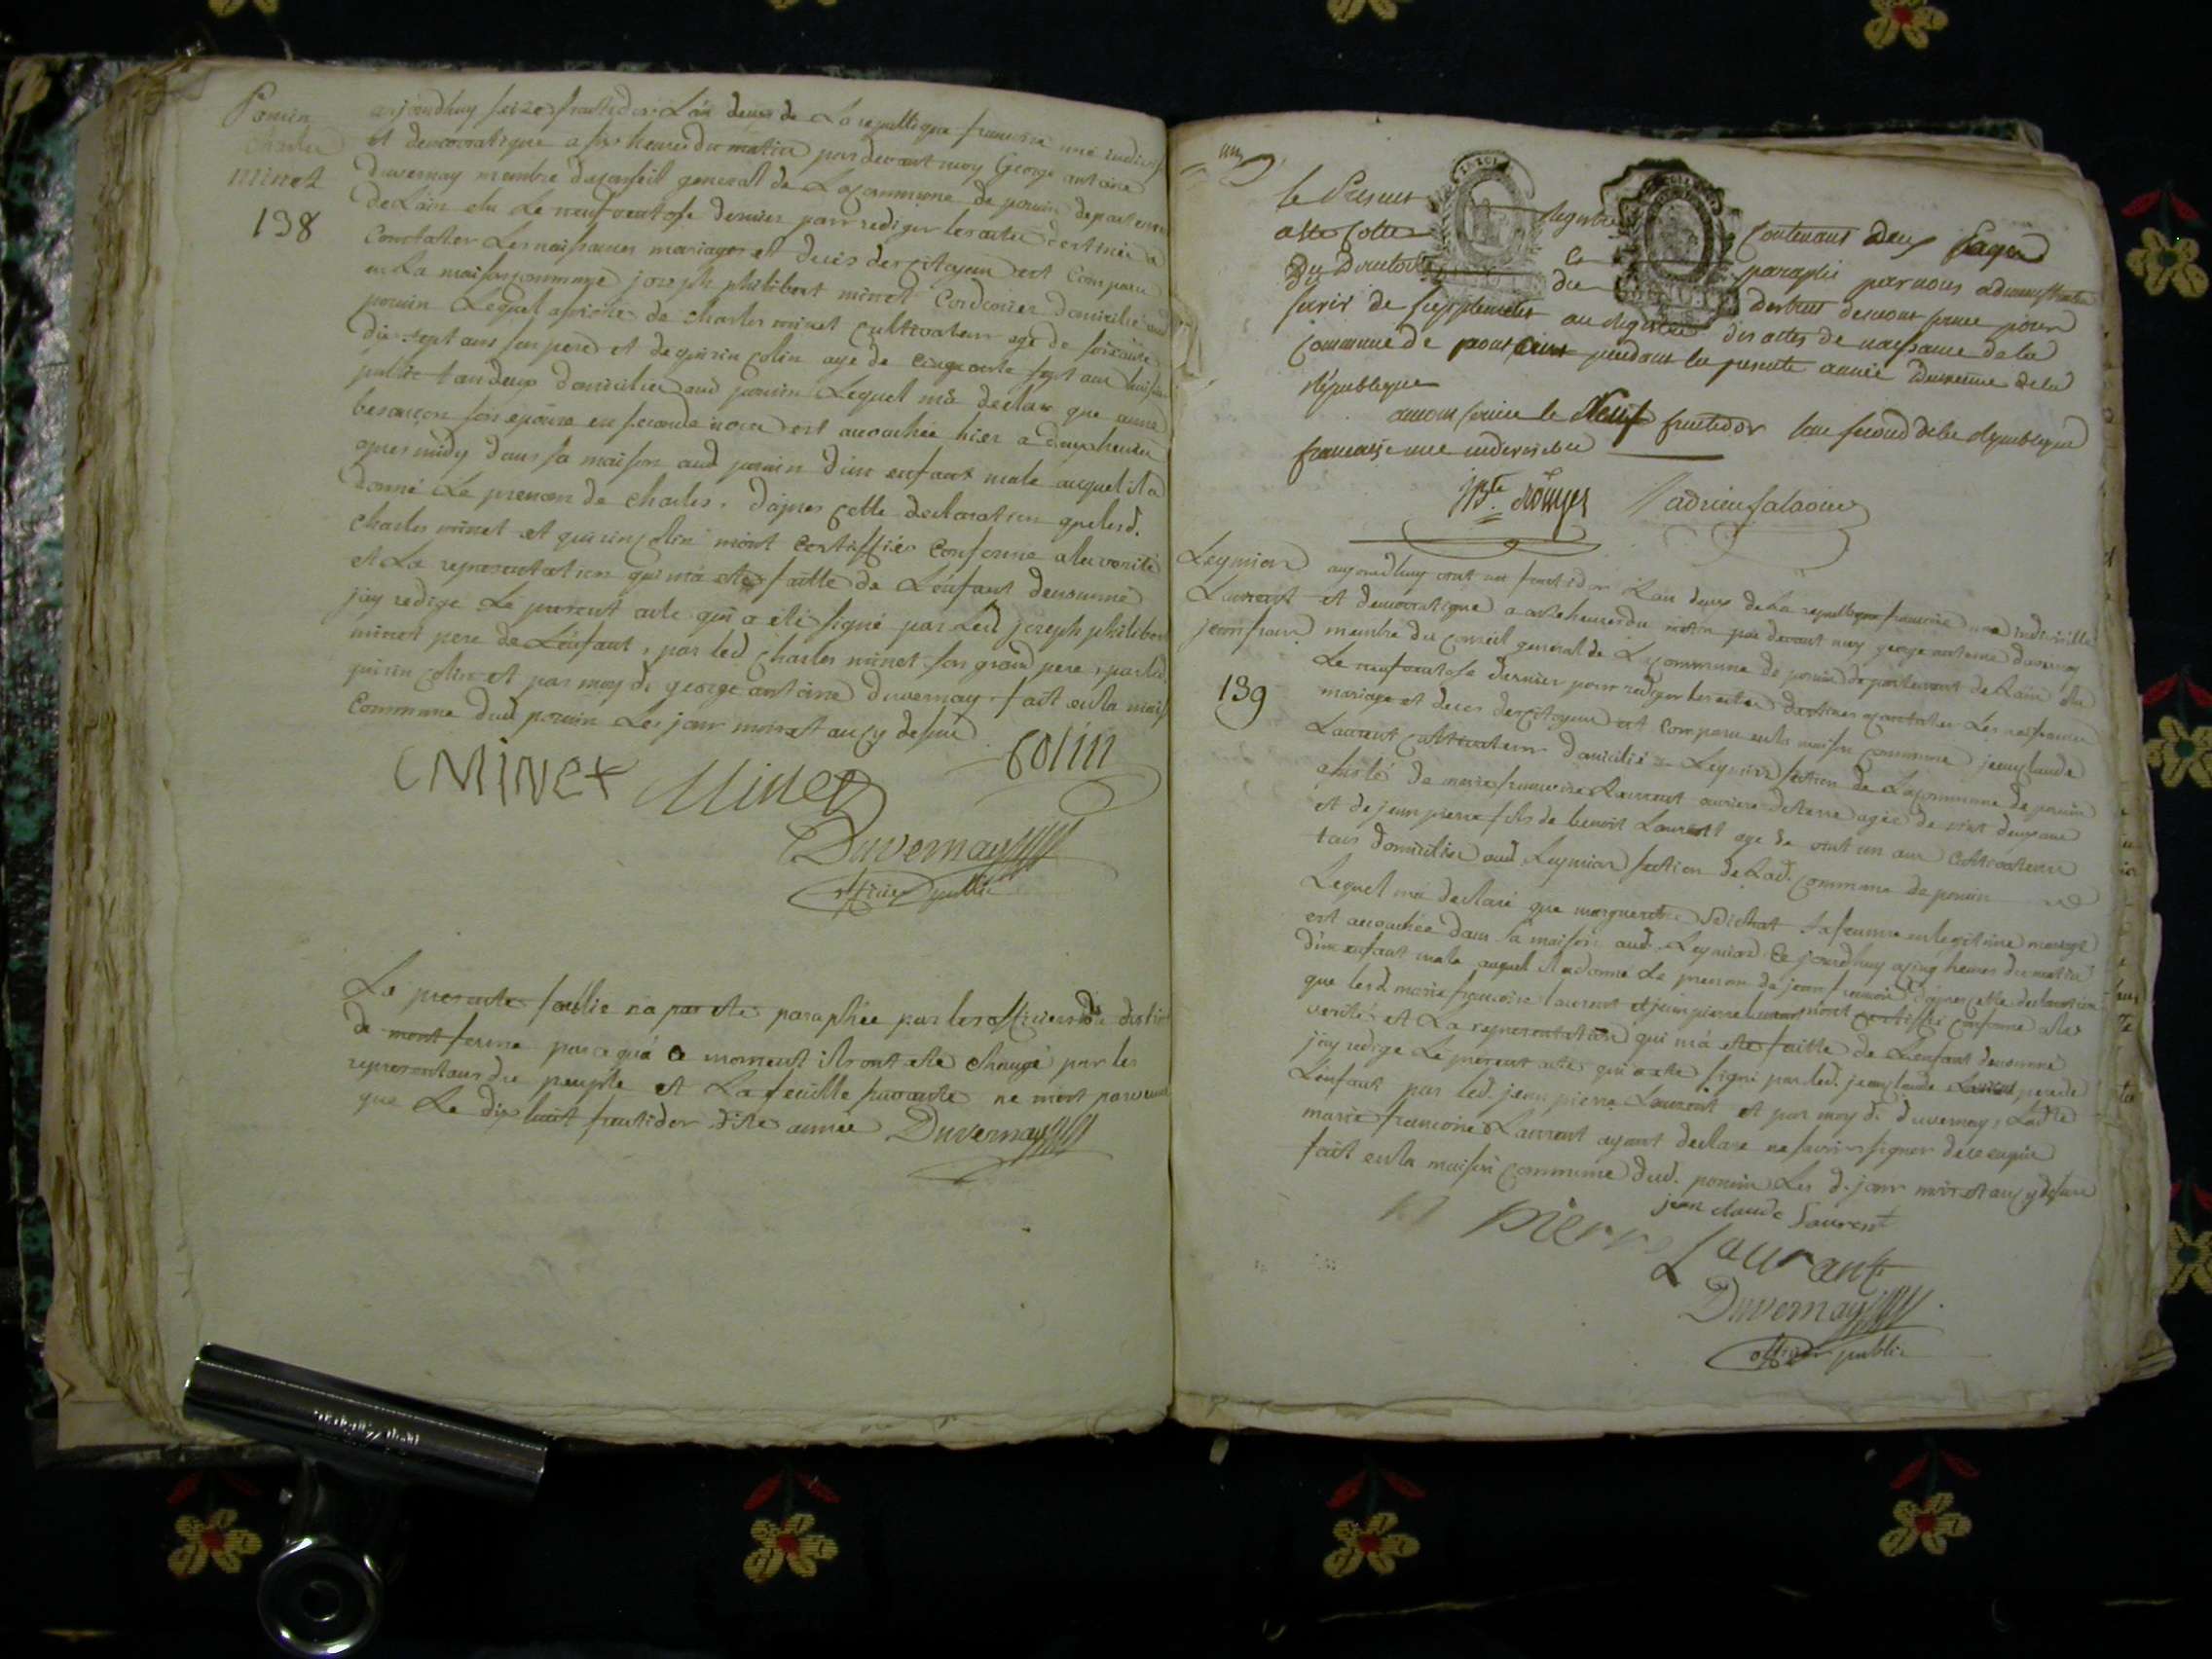 Pouin
Charles
minet
138
aujourdhuy seize fructidor Lan deux de La republique francoise une indivisi
et democratique a six heures du matin par devant moy George antoine
duvernay membre du conseil general de La commune de pouin departement
de Lain elu Le neuf ventose dernier pour rediger les actes destinés a
Constater Les naissances mariages et decés des citoyens est comparu
en La maison commune joseph philibert minet Cordonier domicilié aud
pouin Lequel assisté de charles minet cultivateur agé de soixante
dix sept ans son pere et de quirin colin agé de cinquante sept ans
public tous deux domiciliés aud pouin Lequel m'a declaré que anne
besançon son epouse en seconde noces est accouchée hier a deux heures
apres midy dans sa maison aud pouin d'un enfant male auquel il a
donné Le prenom de charles. d'apres cette declaration que lesd.
Charles minet et quirin colin m'ont certiffiés conforme a la verité
et La representation qui m'a eté faitte de L'enfant denommé
j'ay redigé Le present acte qui a eté signé par Led joseph philibert
minet pere de L'enfant, par led Charles minet son grand pere, par led.
quirin colin et par moy d. george antoine duvernay fait en la maison
Commune dud pouin Les jour mois et an cy dessus
CMINet Minet colin
Duvernay
officier public
La presente feuille na pas eté paraphée par les officiers du district
de mont ferme parce qu'a ce moment ils ont eté changé par les
representans du peuple et La feuille suivante ne m'est parvenue
que Le dix huit fructidor dite année Duvernay
le Present Registre Contenant deux pages
a été Cotté et paraphé par nous administrateur
Du Directoire du district de mont ferme pour
servir de supplement au registre des actes de naissance de la
Commune de pont pendant la presente année deuxieme de la
république
a mont ferme le Neuf fructidor lan second de la republique
francaise une indivisible
JBte. Rouyer adrien
Leymion
Laurent
jean francois
139
aujourdhuy vint un fructidor Lan deux de La republique francoise une indivisible
et democratique a onze heures du matin par devant moy george antoine duvernay
membre du conseil general de La commune de pouin departement de Lain elu
Le neuf ventose dernier pour rediger les actes destines a constater Les naissances
mariage et deces des citoyens est comparu en la maison commune jean claude
Laurent cultivateur domicilié a Leymion section de La commune de pouin
assisté de marie francoise Laurent ouvriere de terre agée de vint deux ans
et de jean pierre fils de benoit Laurent age de vint un ans cultivateur
tous domiciliés aud Leymion section de Lad. commune de pouin
Lequel m'a declaré que marguerite sa femme en legitime mariage
est accouchée dans sa maison aud. Leymion ce jourdhuy a cinq heures du matin
d'un enfant male auquel il a donné Le prenom de jean francois d'apres cette declaration
que lesd. marie francoise laurent et jean pierre laurent m'ont certiffié conforme a la
verité et La representation qui m'a eté faitte de L'enfant denommé
j'ay redigé Le present acte qui a eté signé par led. jean claude Laurent pere de
L'enfant par led. jean pierre Laurent et par moy d. duvernay, Ladte
marie francoise Laurent ayant declaré ne savoir signer de ce enquis
fait en la maison commune dud. pouin Les d. jour mois et an cy dessus
jean claude Laurent
pierre Laurant
Duvernay
officier public